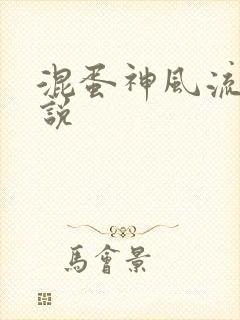 混蛋神風流
說
馬會景